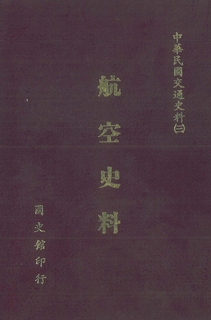 中華民國交通史料(三)
航空史料
國史館印行